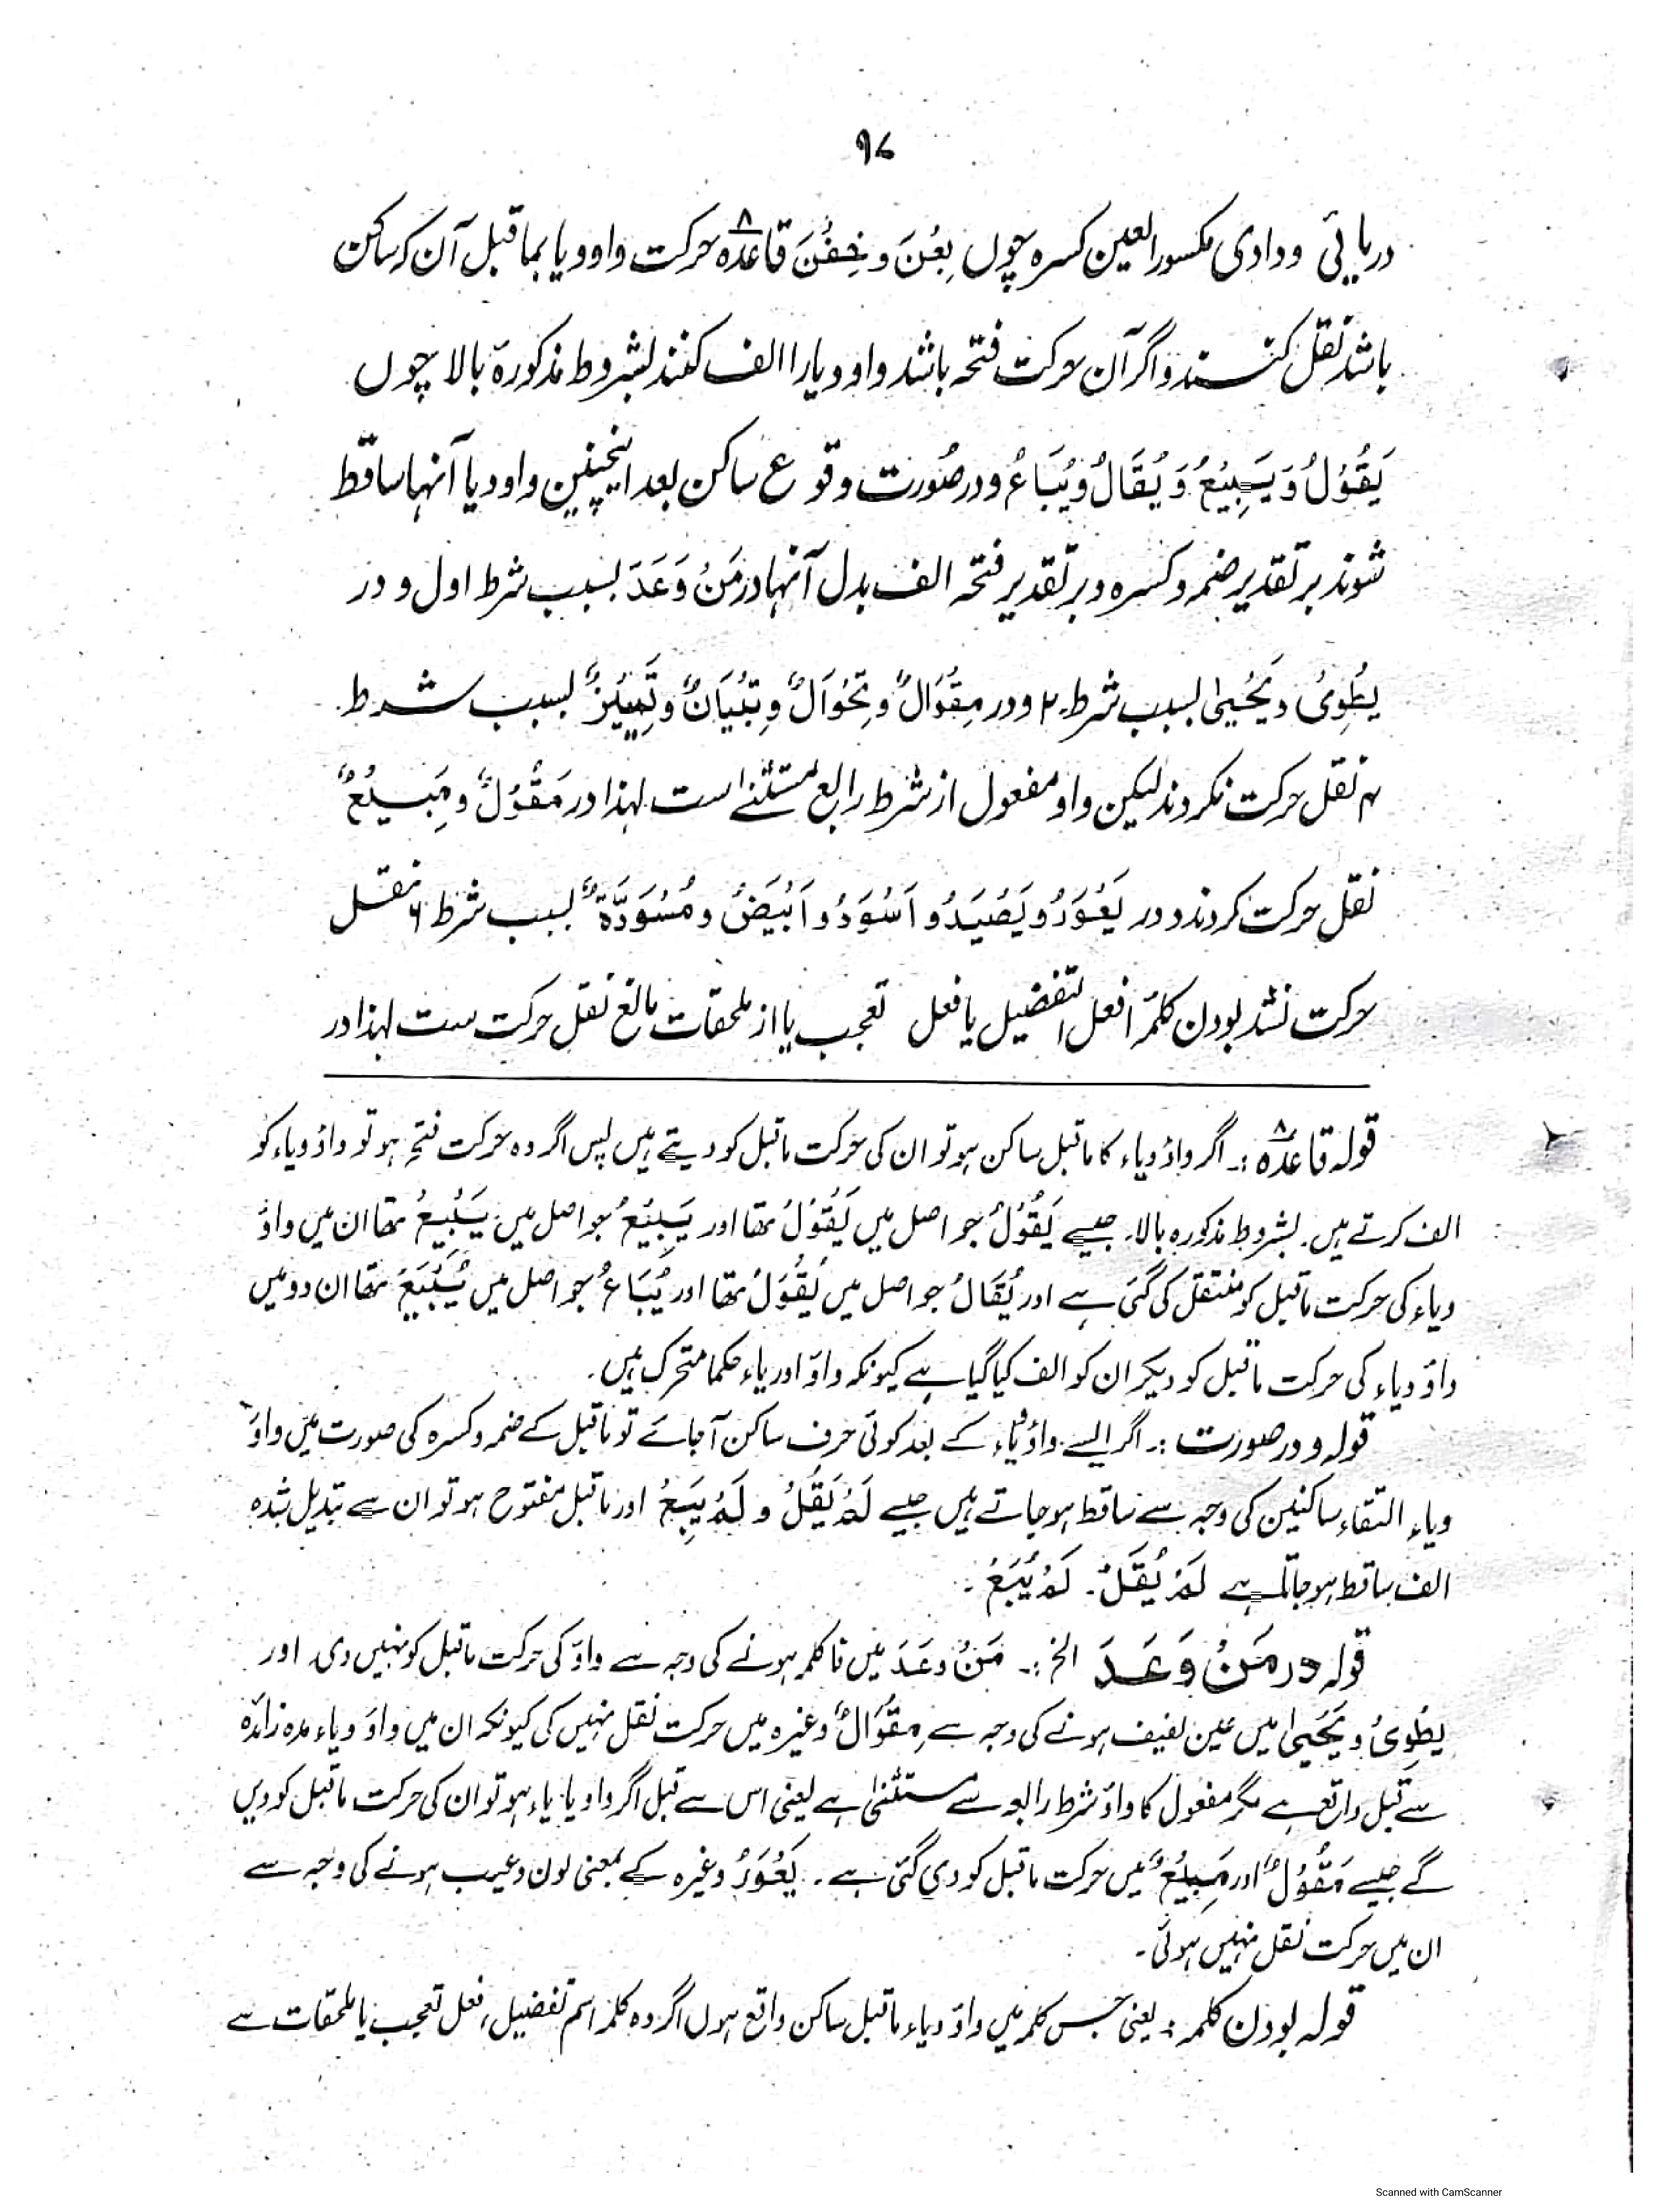 ۹۷
دریائی و وادی مکسور العین کسره چوں بِعْنَ و خِفْنَ قاعده ۸ حرکت واو و یا بما قبل آن که ساکن
باشد نقل کنند و اگر آن حرکت فتحه باشد واو و یا را الف کنند بشروط مذکورهٔ بالا چوں
یَقُوْلُ وَ یَبِیْعُ وَ یُقَالُ و یُبَاعُ و در صُورت وقوع ساکن بعد اینچنین واو و یا آنها ساقط
شوند بر تقدیر ضمه و کسره و بر تقدیر فتحه الف بدل آنها در مَنْ وَعَدَ بسبب شرط اول و در
یَطْوِیْ و یَحْییٰ بسبب شرط ۲ و در مِقْوَالٌ و تِحْوَالٌ و تِبْیَانٌ و تَمْیِیْزٌ بسبب شرط
۴ نقل حرکت نکردند لیکن واو مفعول از شرط رابع مستثنےٰ است لهذا در مَقُوْلٌ و مَبِیْعٌ
نقل حرکت کردند و در یَعْوَرُ و یَصْیَدُ و اَسْوَدُ و اَبْیَضُ و مُسْوَدَّةٌ بسبب شرط ۶ نقل
حرکت نشد بودن کلمهٔ افعل التفضیل یا فعل تعجب یا از ملحقات مانع نقل حرکت ست لهذا در
قولہ قاعدہ ۸ :۔ اگر واؤ ویاء کا ماقبل ساکن ہو تو ان کی حرکت ماقبل کو دیتے ہیں پس اگر وہ حرکت فتحہ ہو تو واؤ ویاء کو
الف کرتے ہیں۔ بشروط مذکورہ بالا۔ جیسے یَقُوْلُ جو اصل میں یَقْوُلُ تھا اور یَبِیْعُ جو اصل میں یَبْیِعُ تھا ان میں واؤ
ویاء کی حرکت ماقبل کو منتقل کی گئی ہے اور یُقَالُ جو اصل میں یُقْوَلُ تھا اور یُبَاعُ جو اصل میں یُبْیَعُ تھا ان دو میں
واؤ ویاء کی حرکت ماقبل کو دیکر ان کو الف کیا گیا ہے کیونکہ واؤ اور یاء حکما متحرک ہیں۔
قولہ و در صورت :۔ اگر ایسے واؤ ویاء کے بعد کوئی حرف ساکن آجائے تو ماقبل کے ضمہ وکسرہ کی صورت میں واؤ
ویاء التقاء ساکنین کی وجہ سے ساقط ہو جاتے ہیں جیسے لَمْ یَقُلْ و لَمْ یَبِعْ اور ماقبل مفتوح ہو تو ان سے تبدیل شدہ
الف ساقط ہو جاتا ہے لَمْ یُقَلْ۔ لَمْ یُبَعْ۔
قولہ در مَنْ وَعَدَ الخ :۔ مَنْ وَعَدَ میں فا کلمہ ہونے کی وجہ سے واؤ کی حرکت ماقبل کو نہیں دی اور
یَطْوِیْ و یَحْییٰ میں عین لفیف ہونے کی وجہ سے مِقْوَالٌ وغیرہ میں حرکت نقل نہیں کی کیونکہ ان میں واؤ ویاء مدہ زائدہ
سے قبل واقع ہے مگر مفعول کا واؤ شرط رابع سے مستثنیٰ ہے یعنی اس سے قبل اگر واو یا یاء ہو تو ان کی حرکت ماقبل کو دیں
گے جیسے مَقُوْلٌ اور مَبِیْعٌ میں حرکت ماقبل کو دی گئی ہے۔ یَعْوَرُ وغیرہ کے بمعنی لون وعیب ہونے کی وجہ سے
ان میں حرکت نقل نہیں ہوئی۔
قولہ بودن کلمہ : یعنی جس کلمہ میں واؤ ویاء ماقبل ساکن واقع ہوں اگر وہ کلمہ اسم تفضیل، فعل تعجب یا ملحقات سے
Scanned with CamScanner